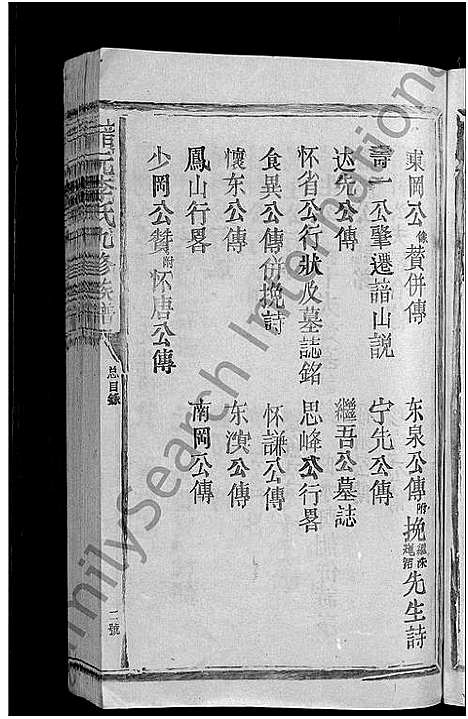 東岡公像贊併傳
东泉公傳附挽濂洙先生詩
壽一公肇遷諳山説
宁先公傳
达先公傳
繼吾公墓誌
怀省公行狀及墓誌銘
思峰公行畧
食異公傳併挽詩
怀謙公傳
懷东公傳
东濱公傳
鳳山行畧
南岡公傳
少岡公贊附怀唐公傳
李氏九修族譜
总目録
二號
FamilySearch International